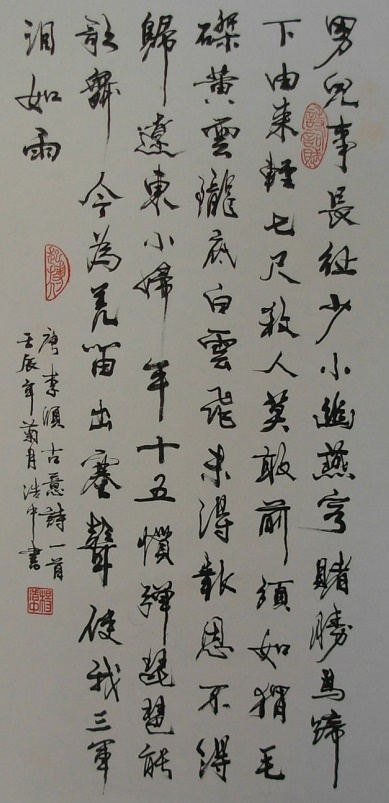 男兒事長征少小幽燕客賭勝馬蹄
下由来輕七尺殺人莫敢前須如猬毛
磔黄雲隴底白雲飛未得報恩不得
歸遼東小婦年十五慣彈琵琶能
歌舞今為羌笛出塞聲使我三軍
泪如雨
唐李頎古意詩一首
壬辰年菊月浩中書